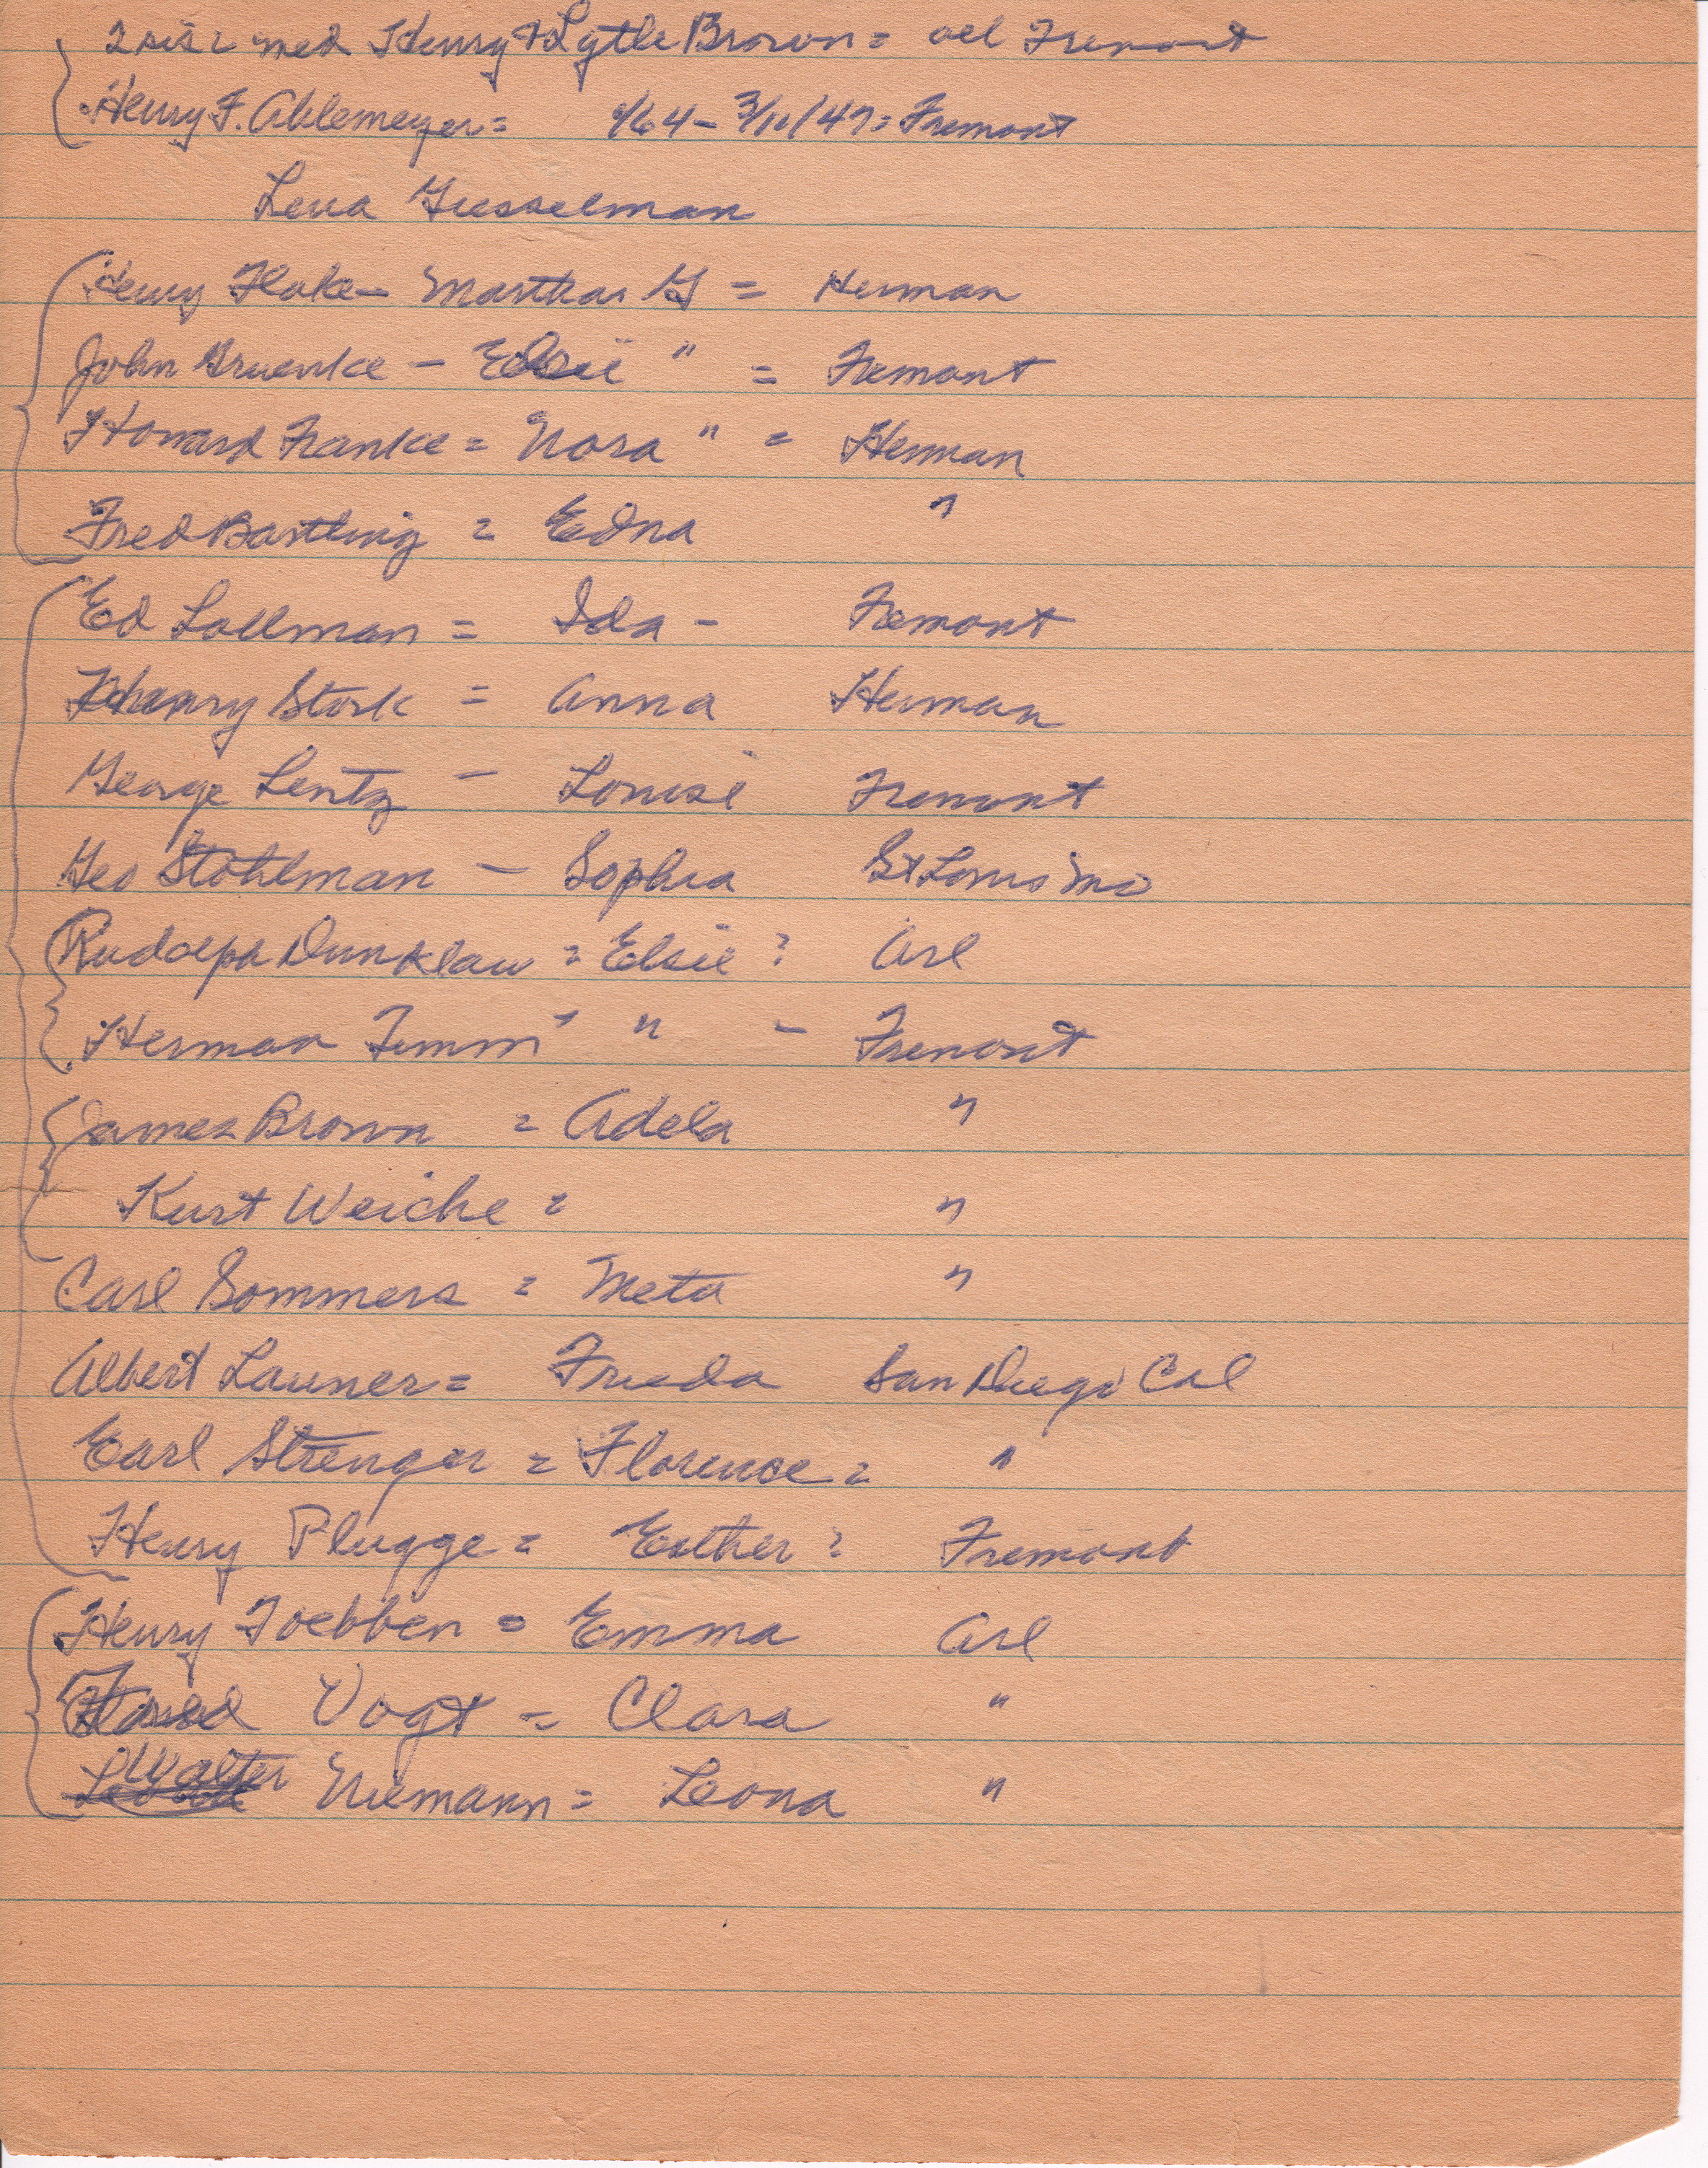 2 sis = med Henry & Lytle Brown = all Fremont
Henry F. Ahlemeyer = 1/64 - 3/11/47 = Fremont
Lena Giesselman
Henry Flake - Martha G = Herman
John Gruenke - Elsie " = Fremont
Howard Franke = Nora " = Herman
Fred Bartling = Edna "
Ed Lallman = Ida - Fremont
Henry Stork = Anna Herman
George Lentz - Louise Fremont
Geo Stohlman - Sophia St Louis Mo
Rudolph Dunklau = Elsie = Arl
Herman Timm " " - Fremont
James Brown = Adela "
Kurt Weiche = "
Carl Sommers = Meta "
Albert Launer = Frieda San Diego Cal
Earl Strenger = Florence = "
Henry Plugge = Esther = Fremont
Henry Toebben = Emma Arl
Fred Vogt = Clara "
Walter Niemann = Leona "